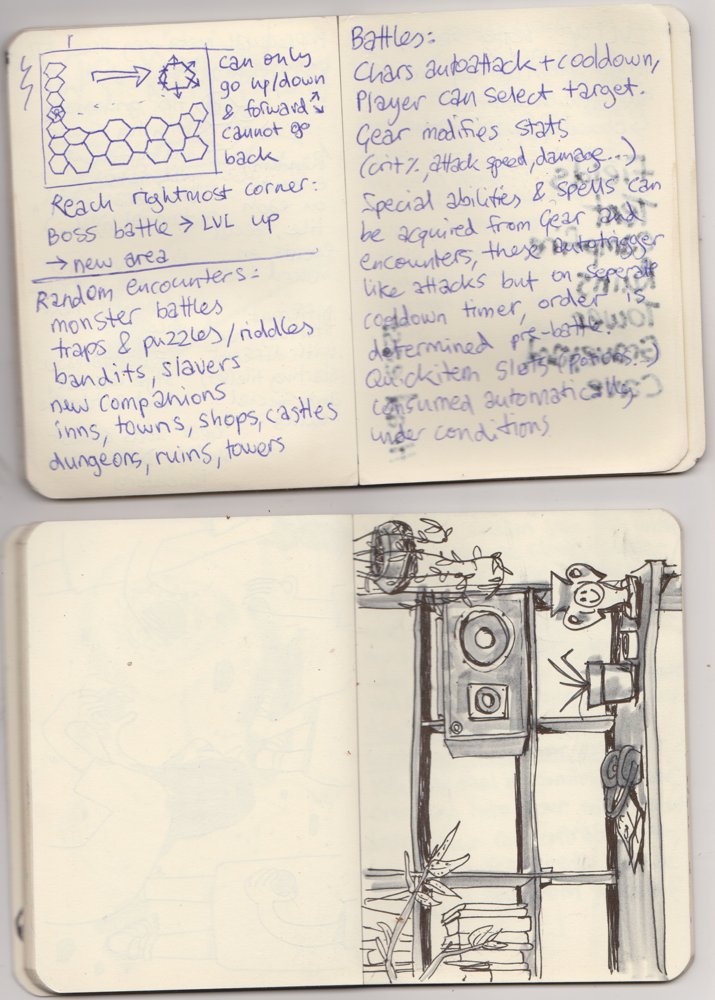 can only
go up/down
& forward
cannot go
back
Reach rightmost corner:
Boss battle → LVL up
→ new area
Random encounters:
monster battles
traps & puzzles/riddles
bandits, slavers
new companions
inns, towns, shops, castles
dungeons, ruins, towers
Battles:
Chars autoattack + cooldown,
Player can select target.
Gear modifies stats
(crit%, attack speed, damage...)
Special abilities & spells can
be acquired from Gear and
encounters, these autotrigger
like attacks but on seperate
cooldown timer, order is
determined pre-battle.
Quickitem slots (potions...)
consumed automatically
under conditions